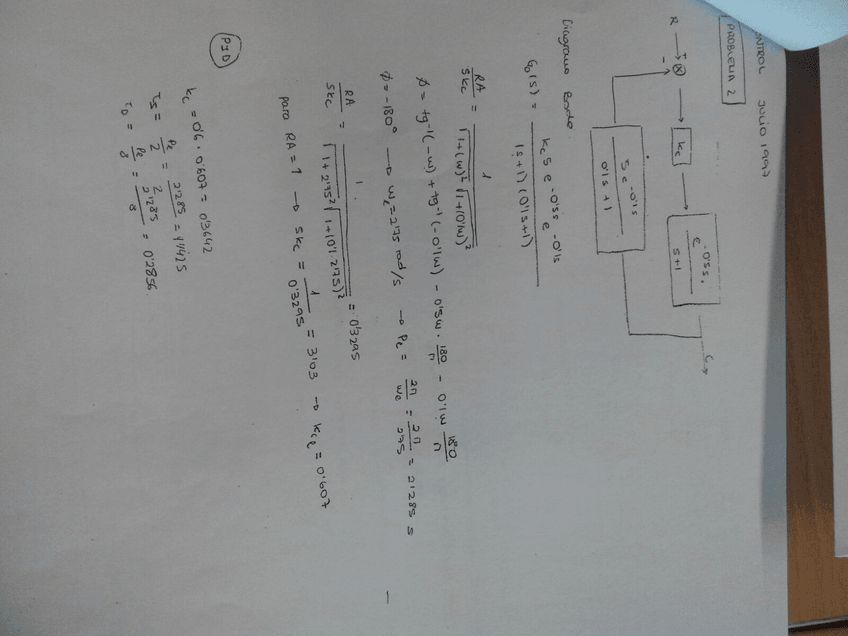 CONTROL JULIO 1997
PROBLEMA 2
R → ⊗ → kc → e^-0's s / s+1 → C
+
-
5 e^-0'1s / 0'1s + 1
Diagrama Bode:
G₀(s) = kc 5 e^-0's s e^-0'1s / (s+1) (0'1s+1)
RA / 5kc = 1 / √1+(w)² √1+(0'1w)²
φ = tg⁻¹(-w) + tg⁻¹(-0'1w) - 0'5w · 180/π - 0'1w 180/π
φ = -180° → wc = 2'75 rad/s → Pc = 2π/wc = 2π/2'75 = 2'285 s
RA / 5kc = 1 / √1+2'75² √1+(0'1·2'75)² = 0'3295
para RA = 1 → 5kc = 1/0'3295 = 3'03 → kc = 0'607
PID
kc = 0'6 · 0'607 = 0'3642
τI = Pc/2 = 2'285/2 = 1'1425
τD = Pc/8 = 2'285/8 = 0'2856